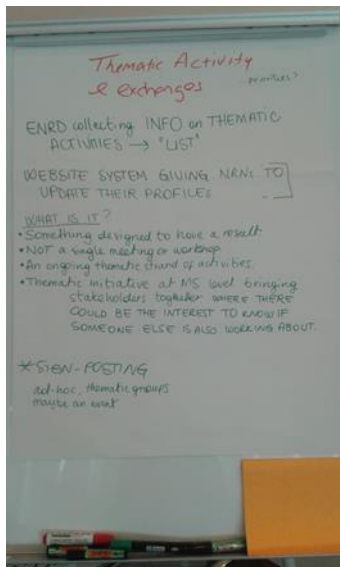 Thematic Activity
& exchanges
...priorities?
ENRD collecting INFO on THEMATIC
ACTIVITIES → "LIST"
WEBSITE SYSTEM GIVING NRNs TO
UPDATE THEIR PROFILES
WHAT IS IT?
• Something designed to have a result
• NOT a single meeting or workshop
• An ongoing thematic strand of activities.
• Thematic initiative at MS level bringing
stakeholders together WHERE THERE
COULD BE THE INTEREST TO KNOW IF
SOMEONE ELSE IS ALSO WORKING ABOUT.
* SIGN-POSTING
ad-hoc, thematic groups
maybe an event